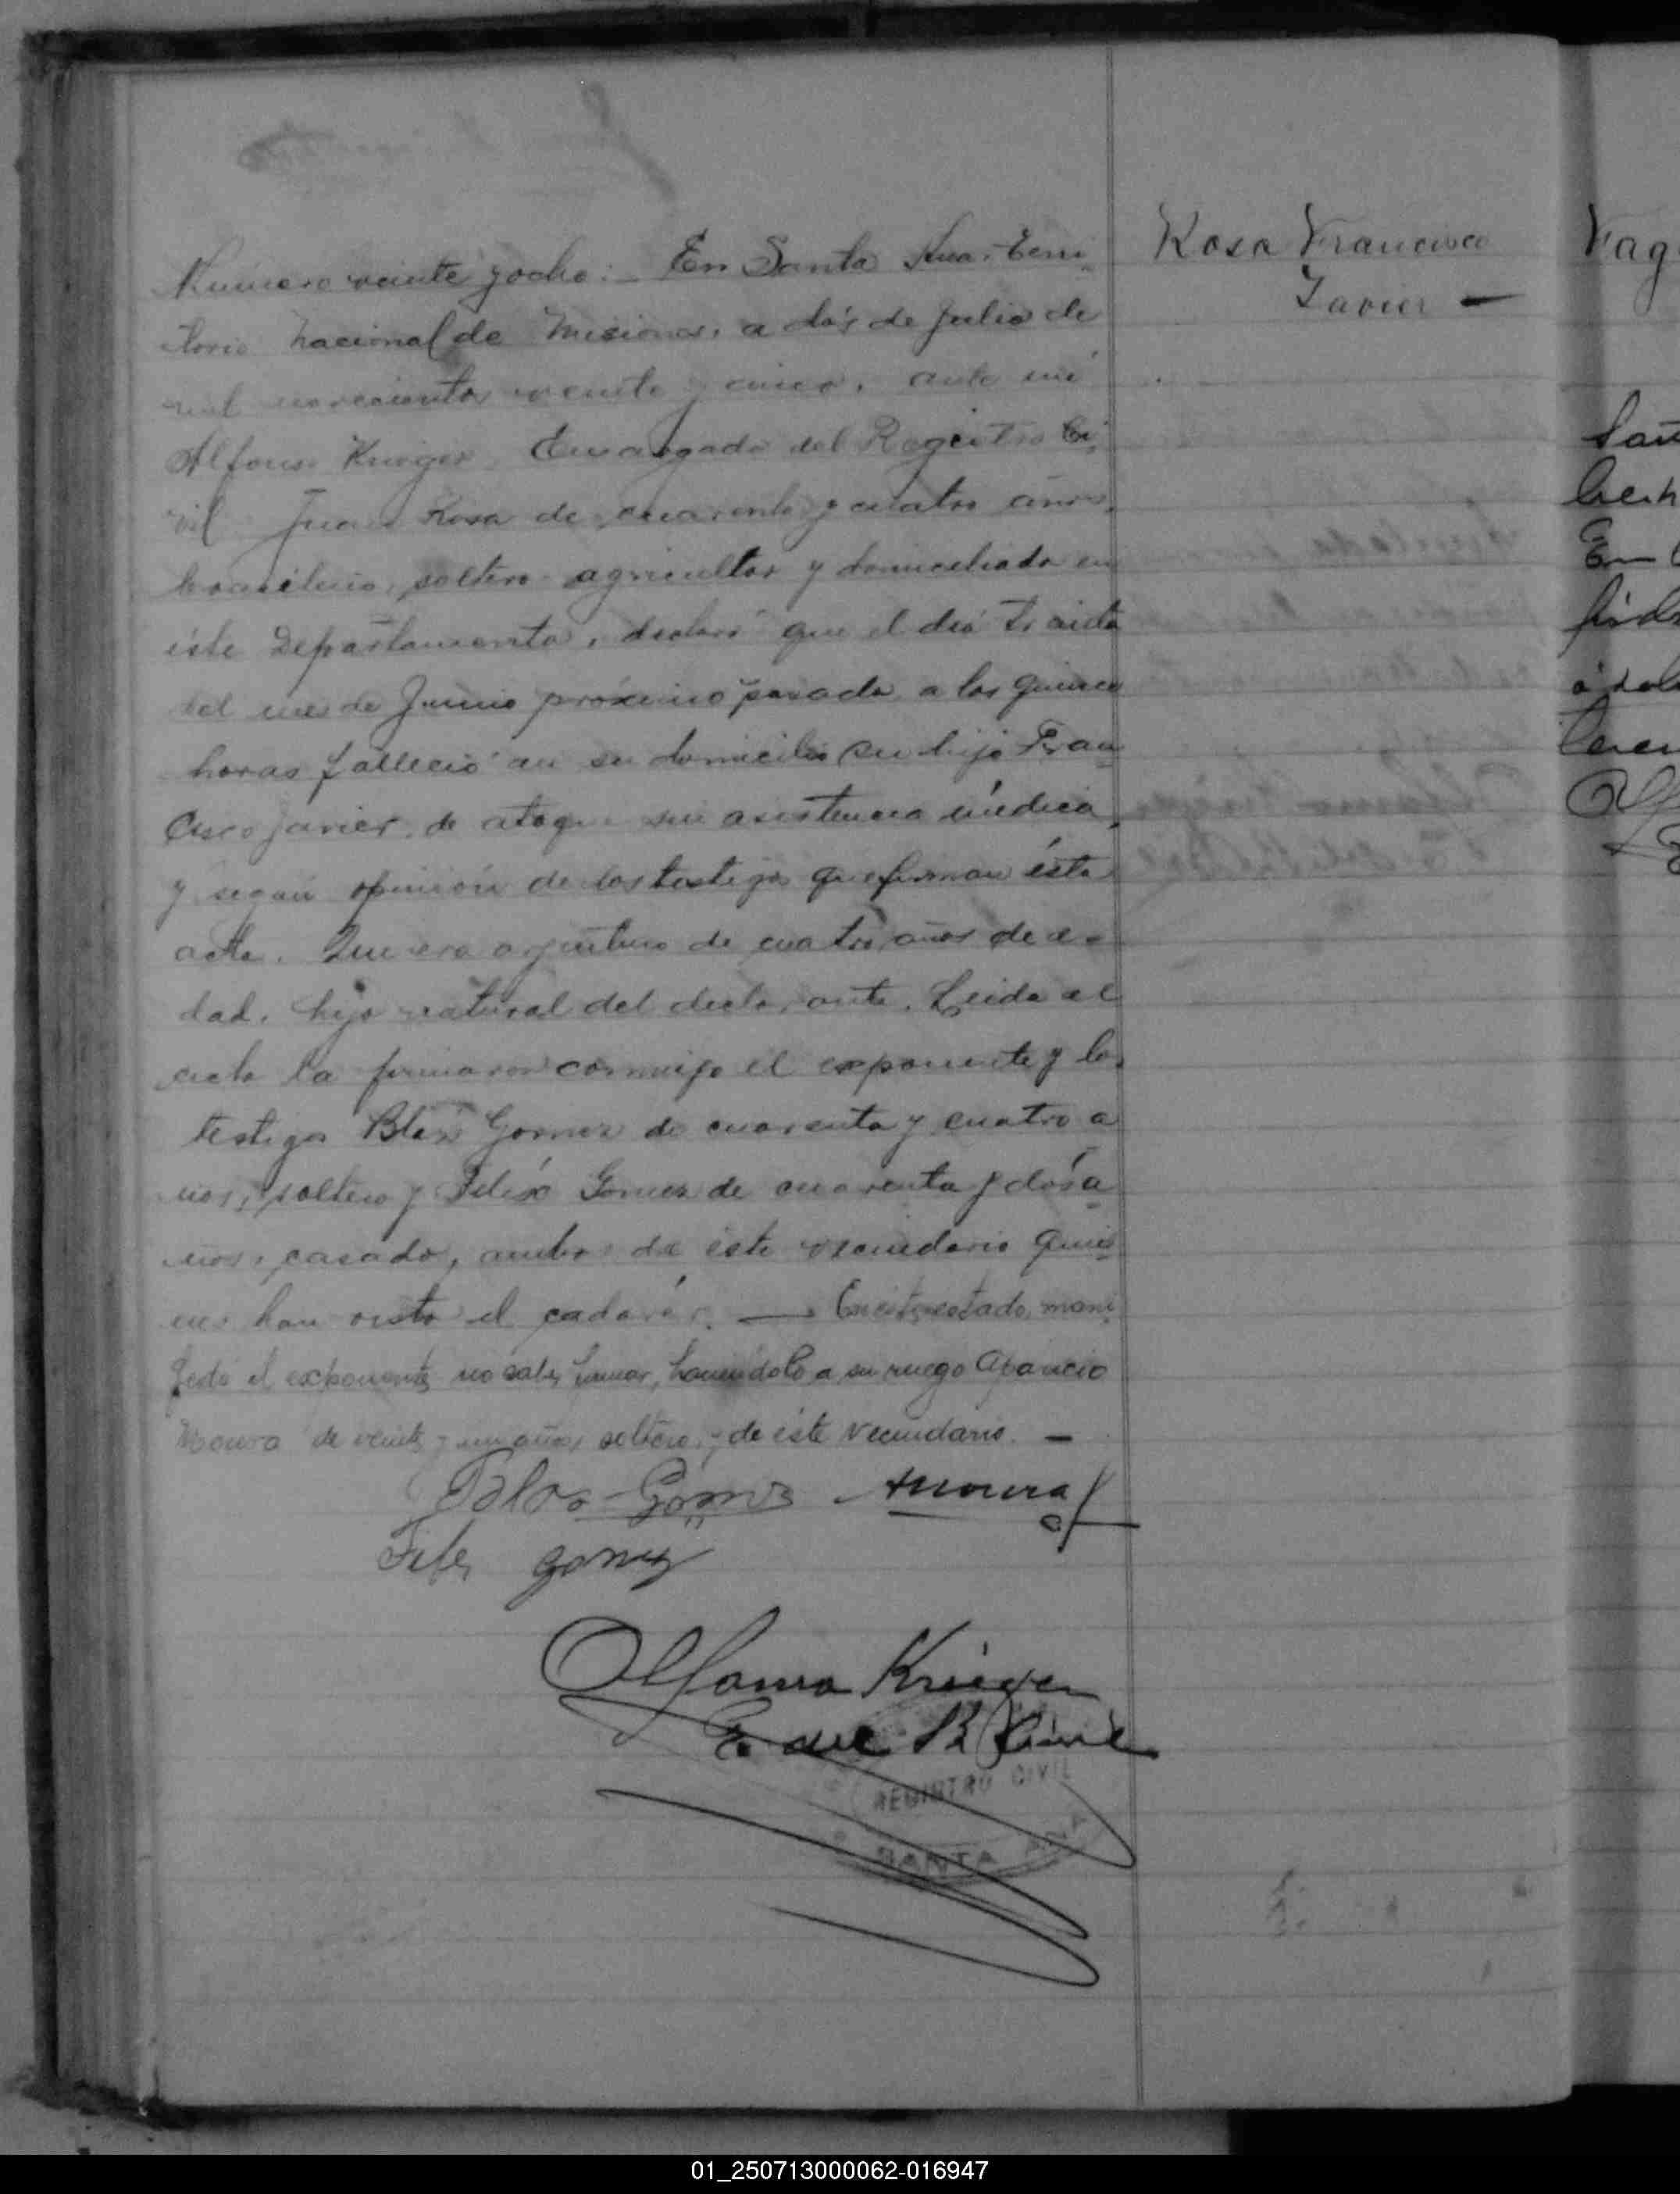 Número veinte y ocho:— En Santa Ana, Terri-
torio nacional de Misiones, a dós de Julio de
mil novecientos veinte y cinco, ante mí
Alfonso Krieger Encargado del Registro Ci-
vil Juan Rosa de cuarenta y cuatro años,
brasilero, soltero agricultor y domiciliado en
éste Departamento, declaró que el diá treinta
del mes de Junio próximo pasado a las quince
horas falleció en su domicilio su hijo Fran-
cisco Javier, de ataque sin asistencia médica,
y según opinión de los testigos que firman ésta
acta. Que era argentino de cuatro años de e-
dad, hijo natural del declarante. Leida el
acta la firmaron conmigo el exponente y los
testigos Blas Gomez de cuarenta y cuatro a
ños, soltero y Félix Gomez de cuarenta y dós a-
ños, casado, ambos de éste vecindario quie-
nes han visto el cadavér. — En este estado, mani-
festó el exponente no saber firmar, haciéndolo a su ruego Aparicio
Moura de veinte y un años, soltero, y de éste vecindario. —
Blas Gomez AMoura
Felix gomez
Alfonso Krieger
Enc del R Civil
REGISTRO CIVIL
SANTA ANA
Rosa Francisco
Javier —
01_250713000062-016947